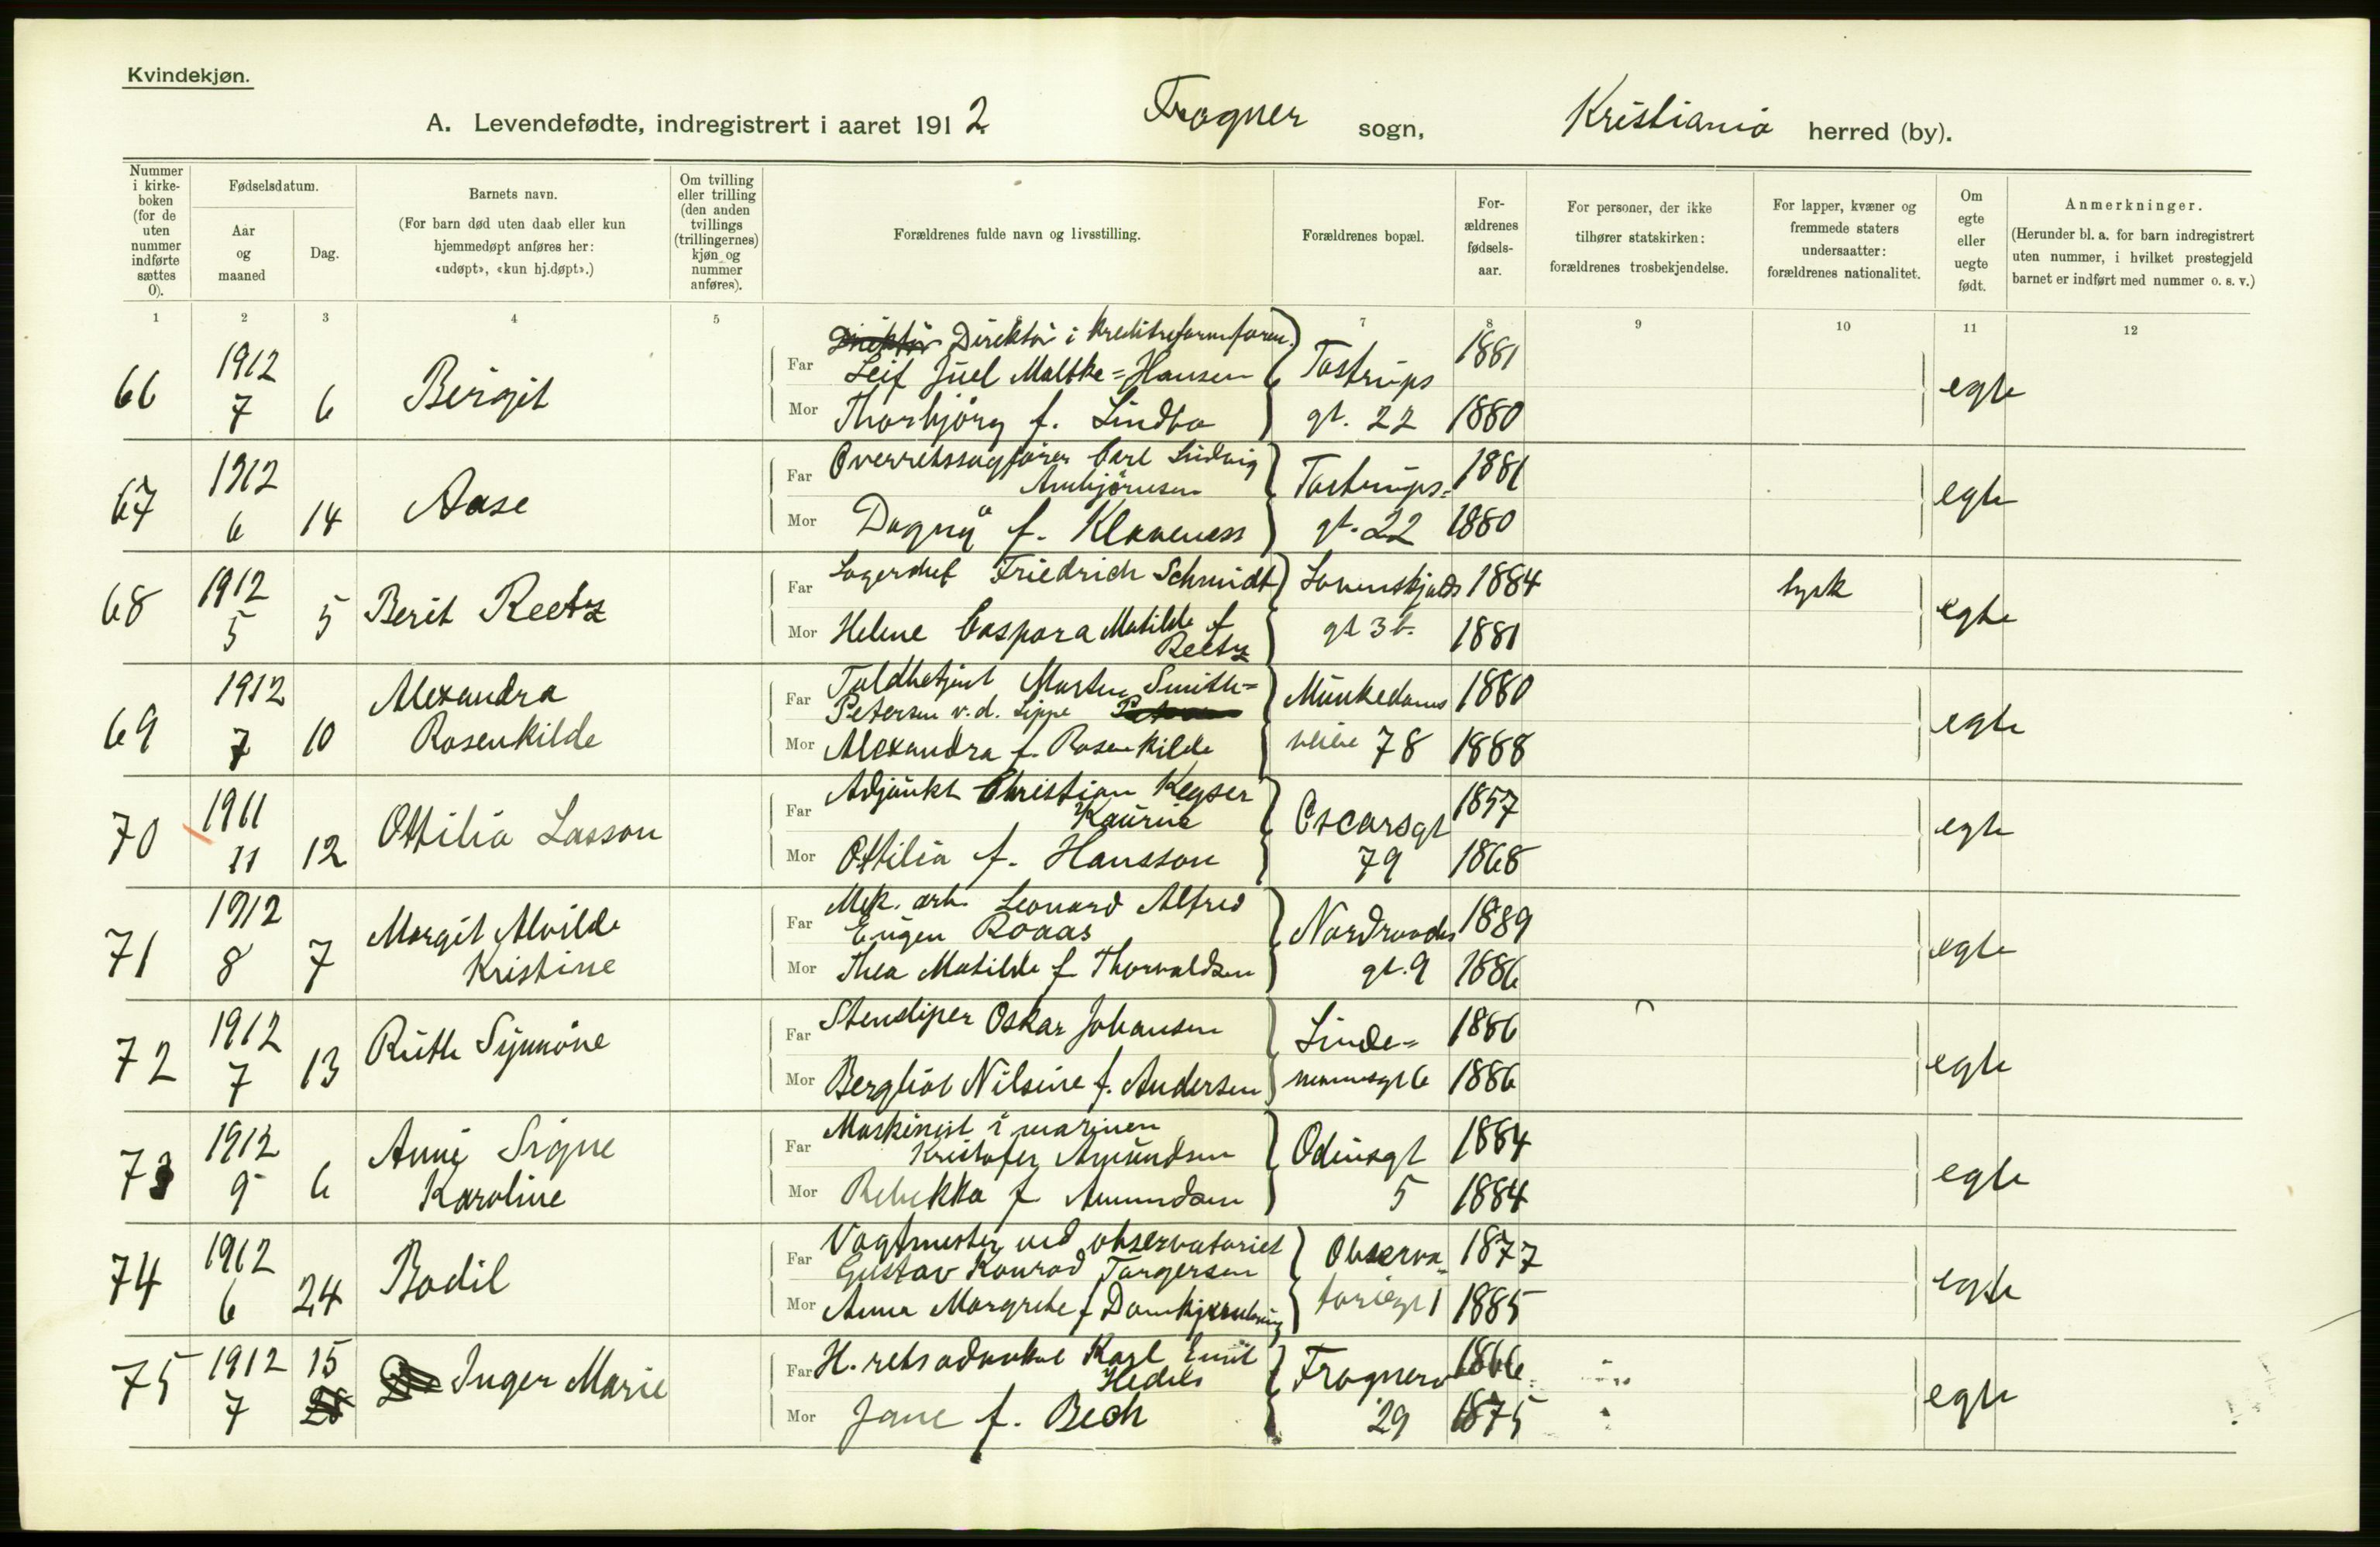 Kvindekjøn.
A. Levendefødte, indregistrert i aaret 1912 Frogner sogn, Kristiania herred (by).
Nummer i kirke-boken (for de uten nummer indførte sættes 0).
Fødselsdatum.
Aar og maaned
Dag.
Barnets navn.
(For barn død uten daab eller kun hjemmedøpt anføres her: «udøpt», «kun hj.døpt».)
Om tvilling eller trilling (den anden tvillings (trillingernes) kjøn og nummer anføres).
Forældrenes fulde navn og livsstilling.
Forældrenes bopæl.
For-ældrenes fødsels-aar.
For personer, der ikke tilhører statskirken: forældrenes trosbekjendelse.
For lapper, kvæner og fremmede staters undersaatter: forældrenes nationalitet.
Om egte eller uegte født.
Anmerkninger.
(Herunder bl. a. for barn indregistrert uten nummer, i hvilket prestegjeld barnet er indført med nummer o. s. v.)
1 2 3 4 5 7 8 9 10 11 12
Direktør i Kreditreformforen.
66 1912 7 6 Birgit Far Leif Juel Maltke=Hansen Tostrups 1881 egte
Mor Thorbjörg f. Lindbo gt. 22 1880
67 1912 6 14 Aase Far Overretssagfører Carl Ludvig Tostrups= 1881 egte
Arnbjörnsen
Mor Dagny f. Klaveness gt. 22 1880
68 1912 5 5 Berit Reetz Far Lagerchef Friedrich Schmidt Lovenskjolds 1884 tysk egte
Mor Helene Caspara Matilde f Reetz gt 3 b. 1881
69 1912 7 10 Alexandra Rosenkilde Far Toldbetjent Morten Smith= Munkedams 1880 egte
Petersen v.d. Lippe
Mor Alexandra f. Rosenkilde veien 78 1888
70 1911 11 12 Ottilia Lasson Far Adjunkt Christian Keyser Oscarsgt 1857 egte
Kaurin
Mor Ottilia f. Hansson 79 1868
71 1912 8 7 Margit Alvilde Kristine Far Mek. arb. Leonard Alfred Nordraaks 1889 egte
Eugen Roaas
Mor Thea Matilde f Thorvaldsen gt. 9 1886
72 1912 7 13 Ruth Synnöve Far Stensliper Oskar Johansen Linde= 1886 egte
Mor Bergliot Nilsine f. Andersen 6 1886
73 1912 9 6 Anni Signe Karoline Far Maskinist i marinen Odinsgt 1884 egte
Kristofer Amundsen
Mor Rebekka f Amundsen 5 1884
74 1912 6 24 Bodil Far Vagtmester ved observatoriet Observa= 1877 egte
Gustav Konrad Torgersen
Mor Anna Margrethe f toriegt 1 1885
75 1912 7 15 Inger Marie Far H. retsadvokat Karl Emil Frognerv 1866 egte
Mor Jane f. Bech 29 1875